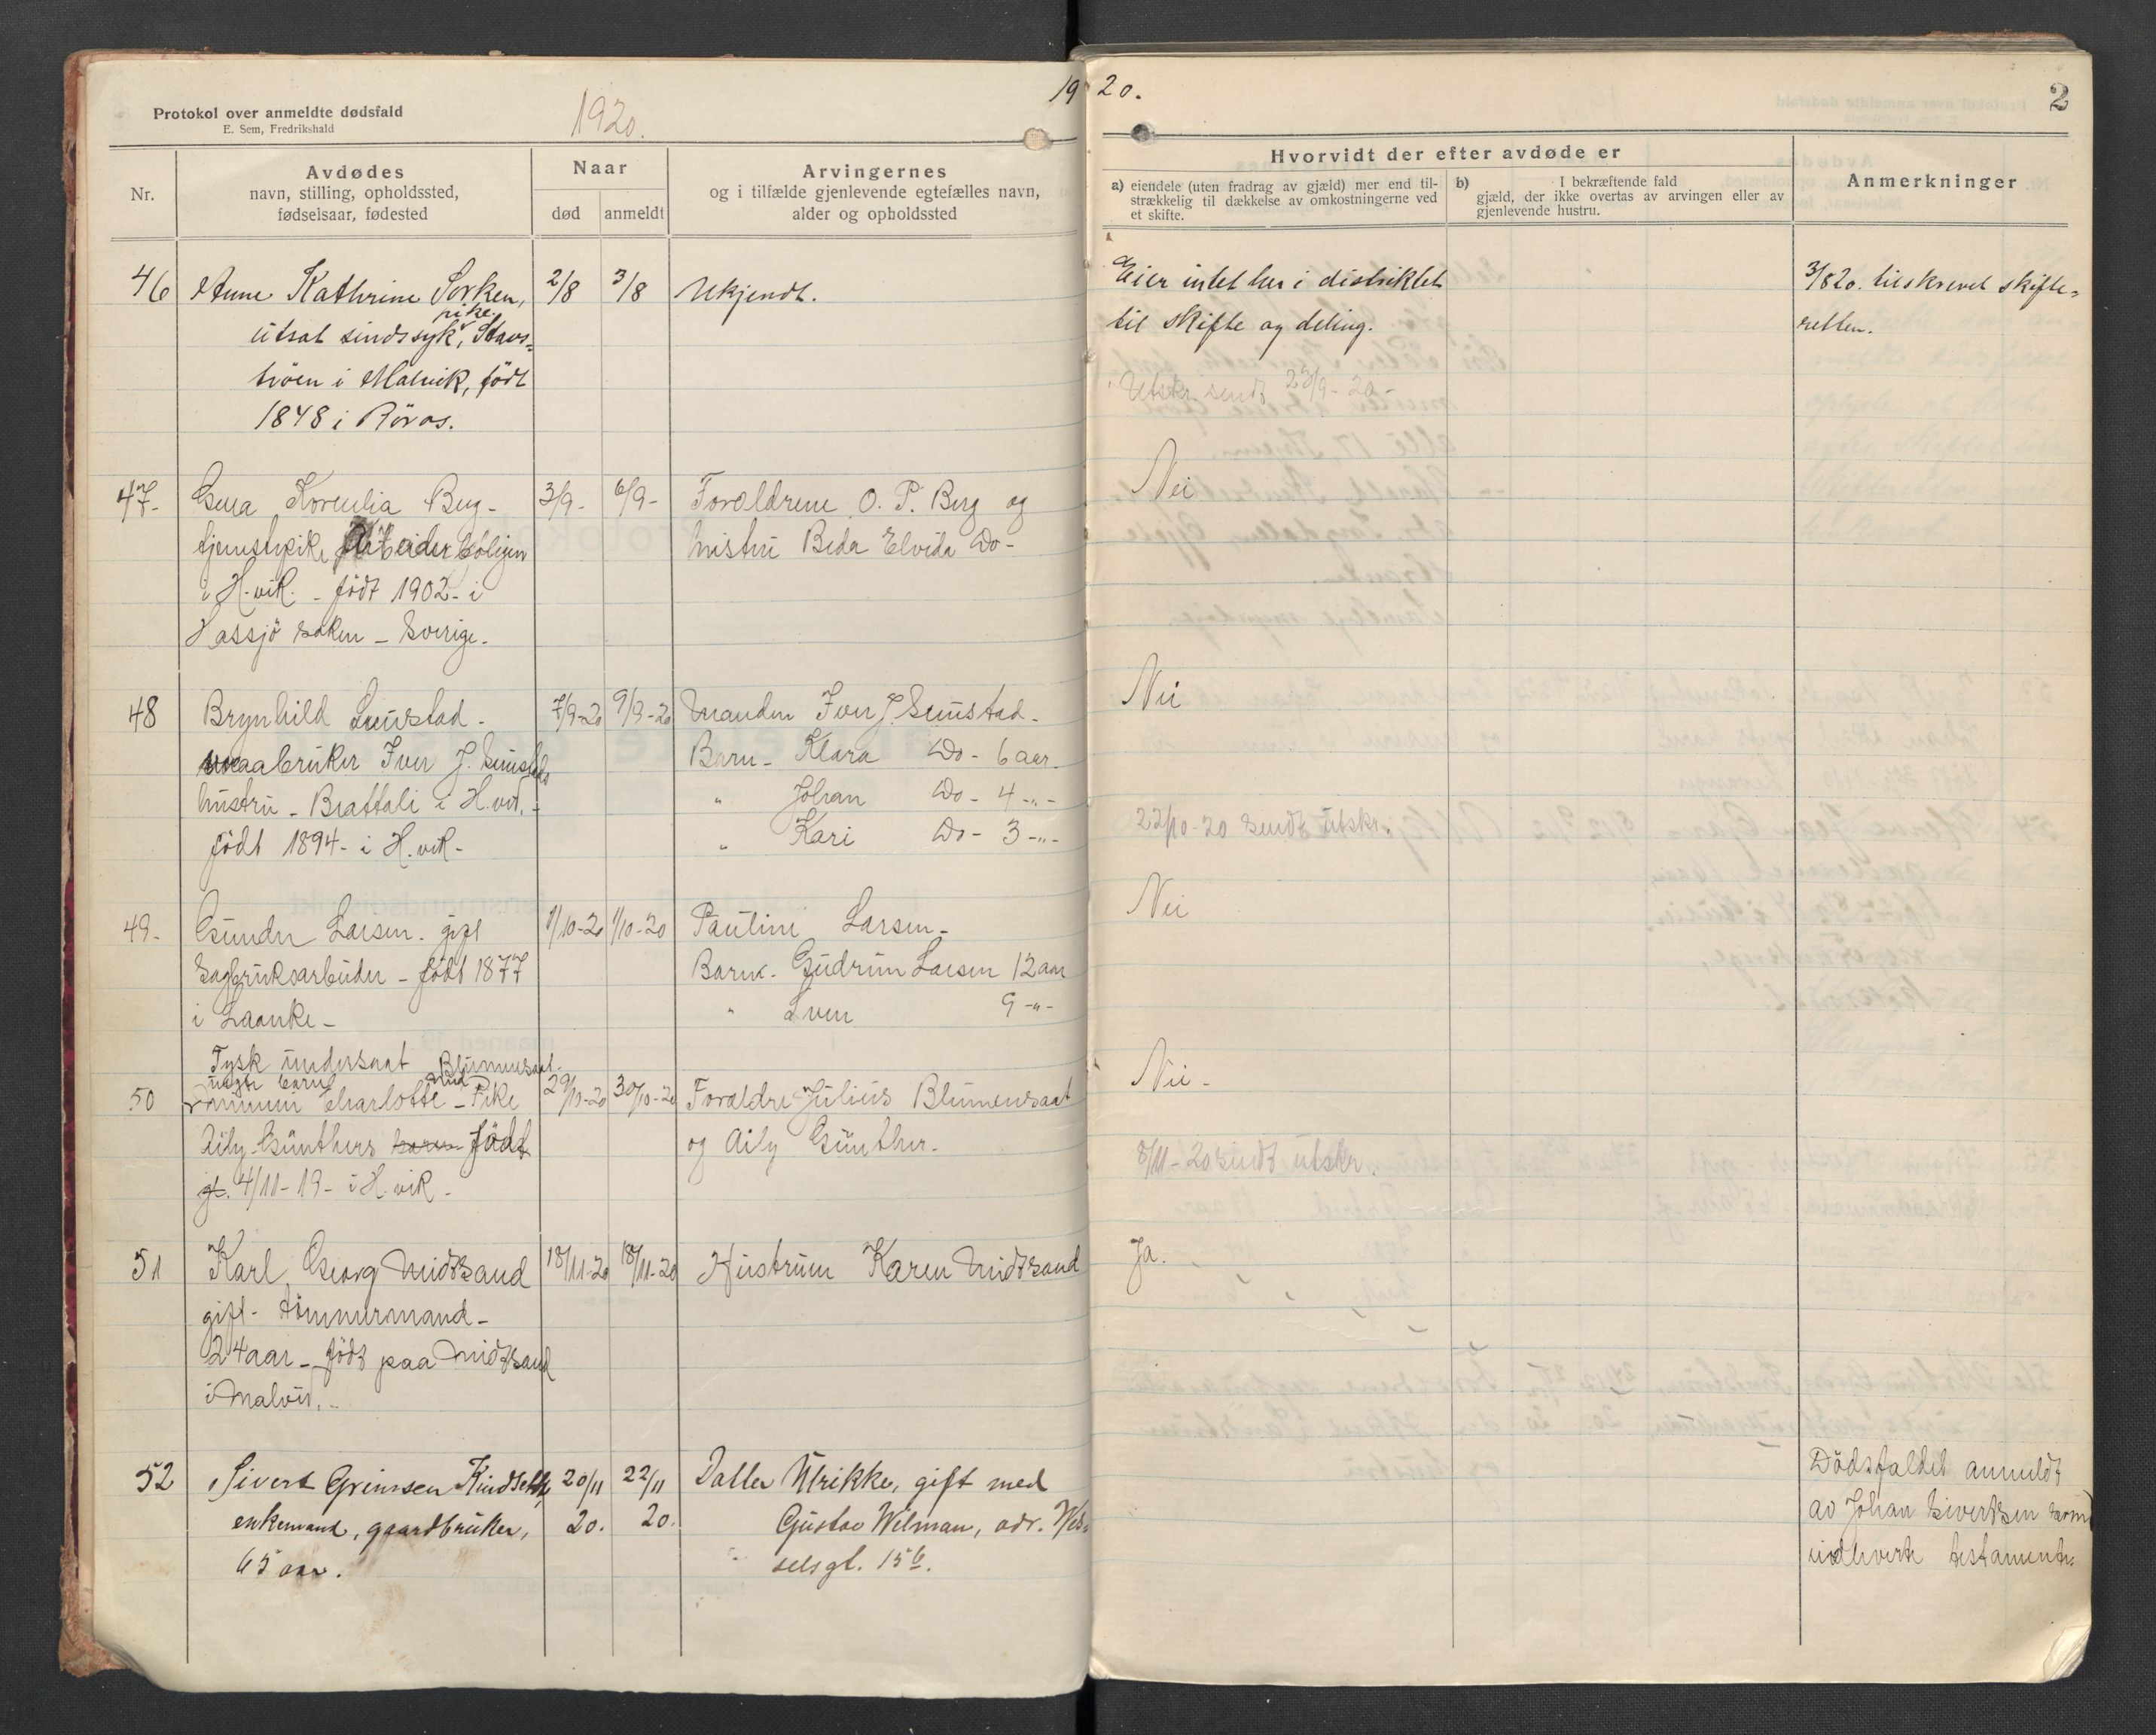 Protokol over anmeldte dødsfald
E. Sem, Fredrikshald
1920.
1920.
2
Nr.
Avdødes
navn, stilling, opholdssted,
fødselsaar, fødested
Naar
død
anmeldt
Arvingernes
og i tilfælde gjenlevende egtefælles navn,
alder og opholdssted
Hvorvidt der efter avdøde er
a) eiendele (uten fradrag av gjæld) mer end til-
strækkelig til dækkelse av omkostningerne ved
et skifte.
b) I bekræftende fald
gjæld, der ikke overtas av arvingen eller av
gjenlevende hustru.
Anmerkninger
46 Anne Kathrine Sorken, 2/8 3/8 Ukjendt.
pike
utsat sindssyk, Stavs-
trøen i Malvik, født
1848 i Röros.
Eier intet her i distriktet
til skifte og deling.
Utskr. sendt 23/9-20-
3/820. tilskrevet skifte-
retten.
47- Korenlia Berg- 3/9- 6/9- Forældrene O. P. Berg og
tjenstepike Arbeiderboligen hustru Beda Elvida Do-
i H.vik. - født 1902- i
Hassjö Soken - Sverige.
Nei
48 Brynhild Sunstad- 7/9-20 9/9-20 Manden Iver J. Sunstad-
Iver J. Sunstads Barn- Klara Do- 6 aar-
hustru - Brattali i H.vik.- " Johan Do- 4-"-
født 1894- i H.vik- " Kari Do- 3-"-
Nei
22/10-20 sendt utskr.
49- Gunder Larsen. gift 1/10-20 1/10-20 Pauline Larsen-
Sagbruksarbeider - født 1877 Barn- Gudrun Larsen 12 aar
i Laanke- " Sven 9-"-
Nei
Tysk undersaat Blumensaat.
uegte barn
50 Charlotte - Pike 29/10-20 30/10-20 Forældre Julius Blumensaat
Aily Günthers barn født og Aily Günther.
4/11-19- i H.vik-
Nei-
8/11-20 sendt utskr.
51 Karl Georg Midtsand 18/11-20 18/11-20 Hustruen Karen Midtsand
gift- tømmermand-
24 aar - født paa Midtsand
i Malvik.-
Ja.
52 Sivert Grimsen Kindseth, 20/11 22/11 Datter Ulrikke, gift med
enkemand, gaardbruker, 20. 20. Gustav Wilman, adr. Wes-
65 aar. selsgt. 15 b.
Dødsfaldet anmeldt
av Johan Sivertsen som
indleverte testamente.